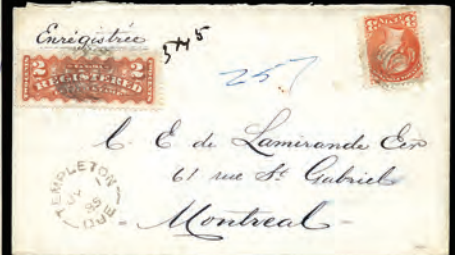 Enrégistrée
2 REGISTERED 2
545
257
3 3
C. E. de Lamirande Ecr
61 rue St. Gabriel
- Montreal -
TEMPLETON
JY 1
85
QUE